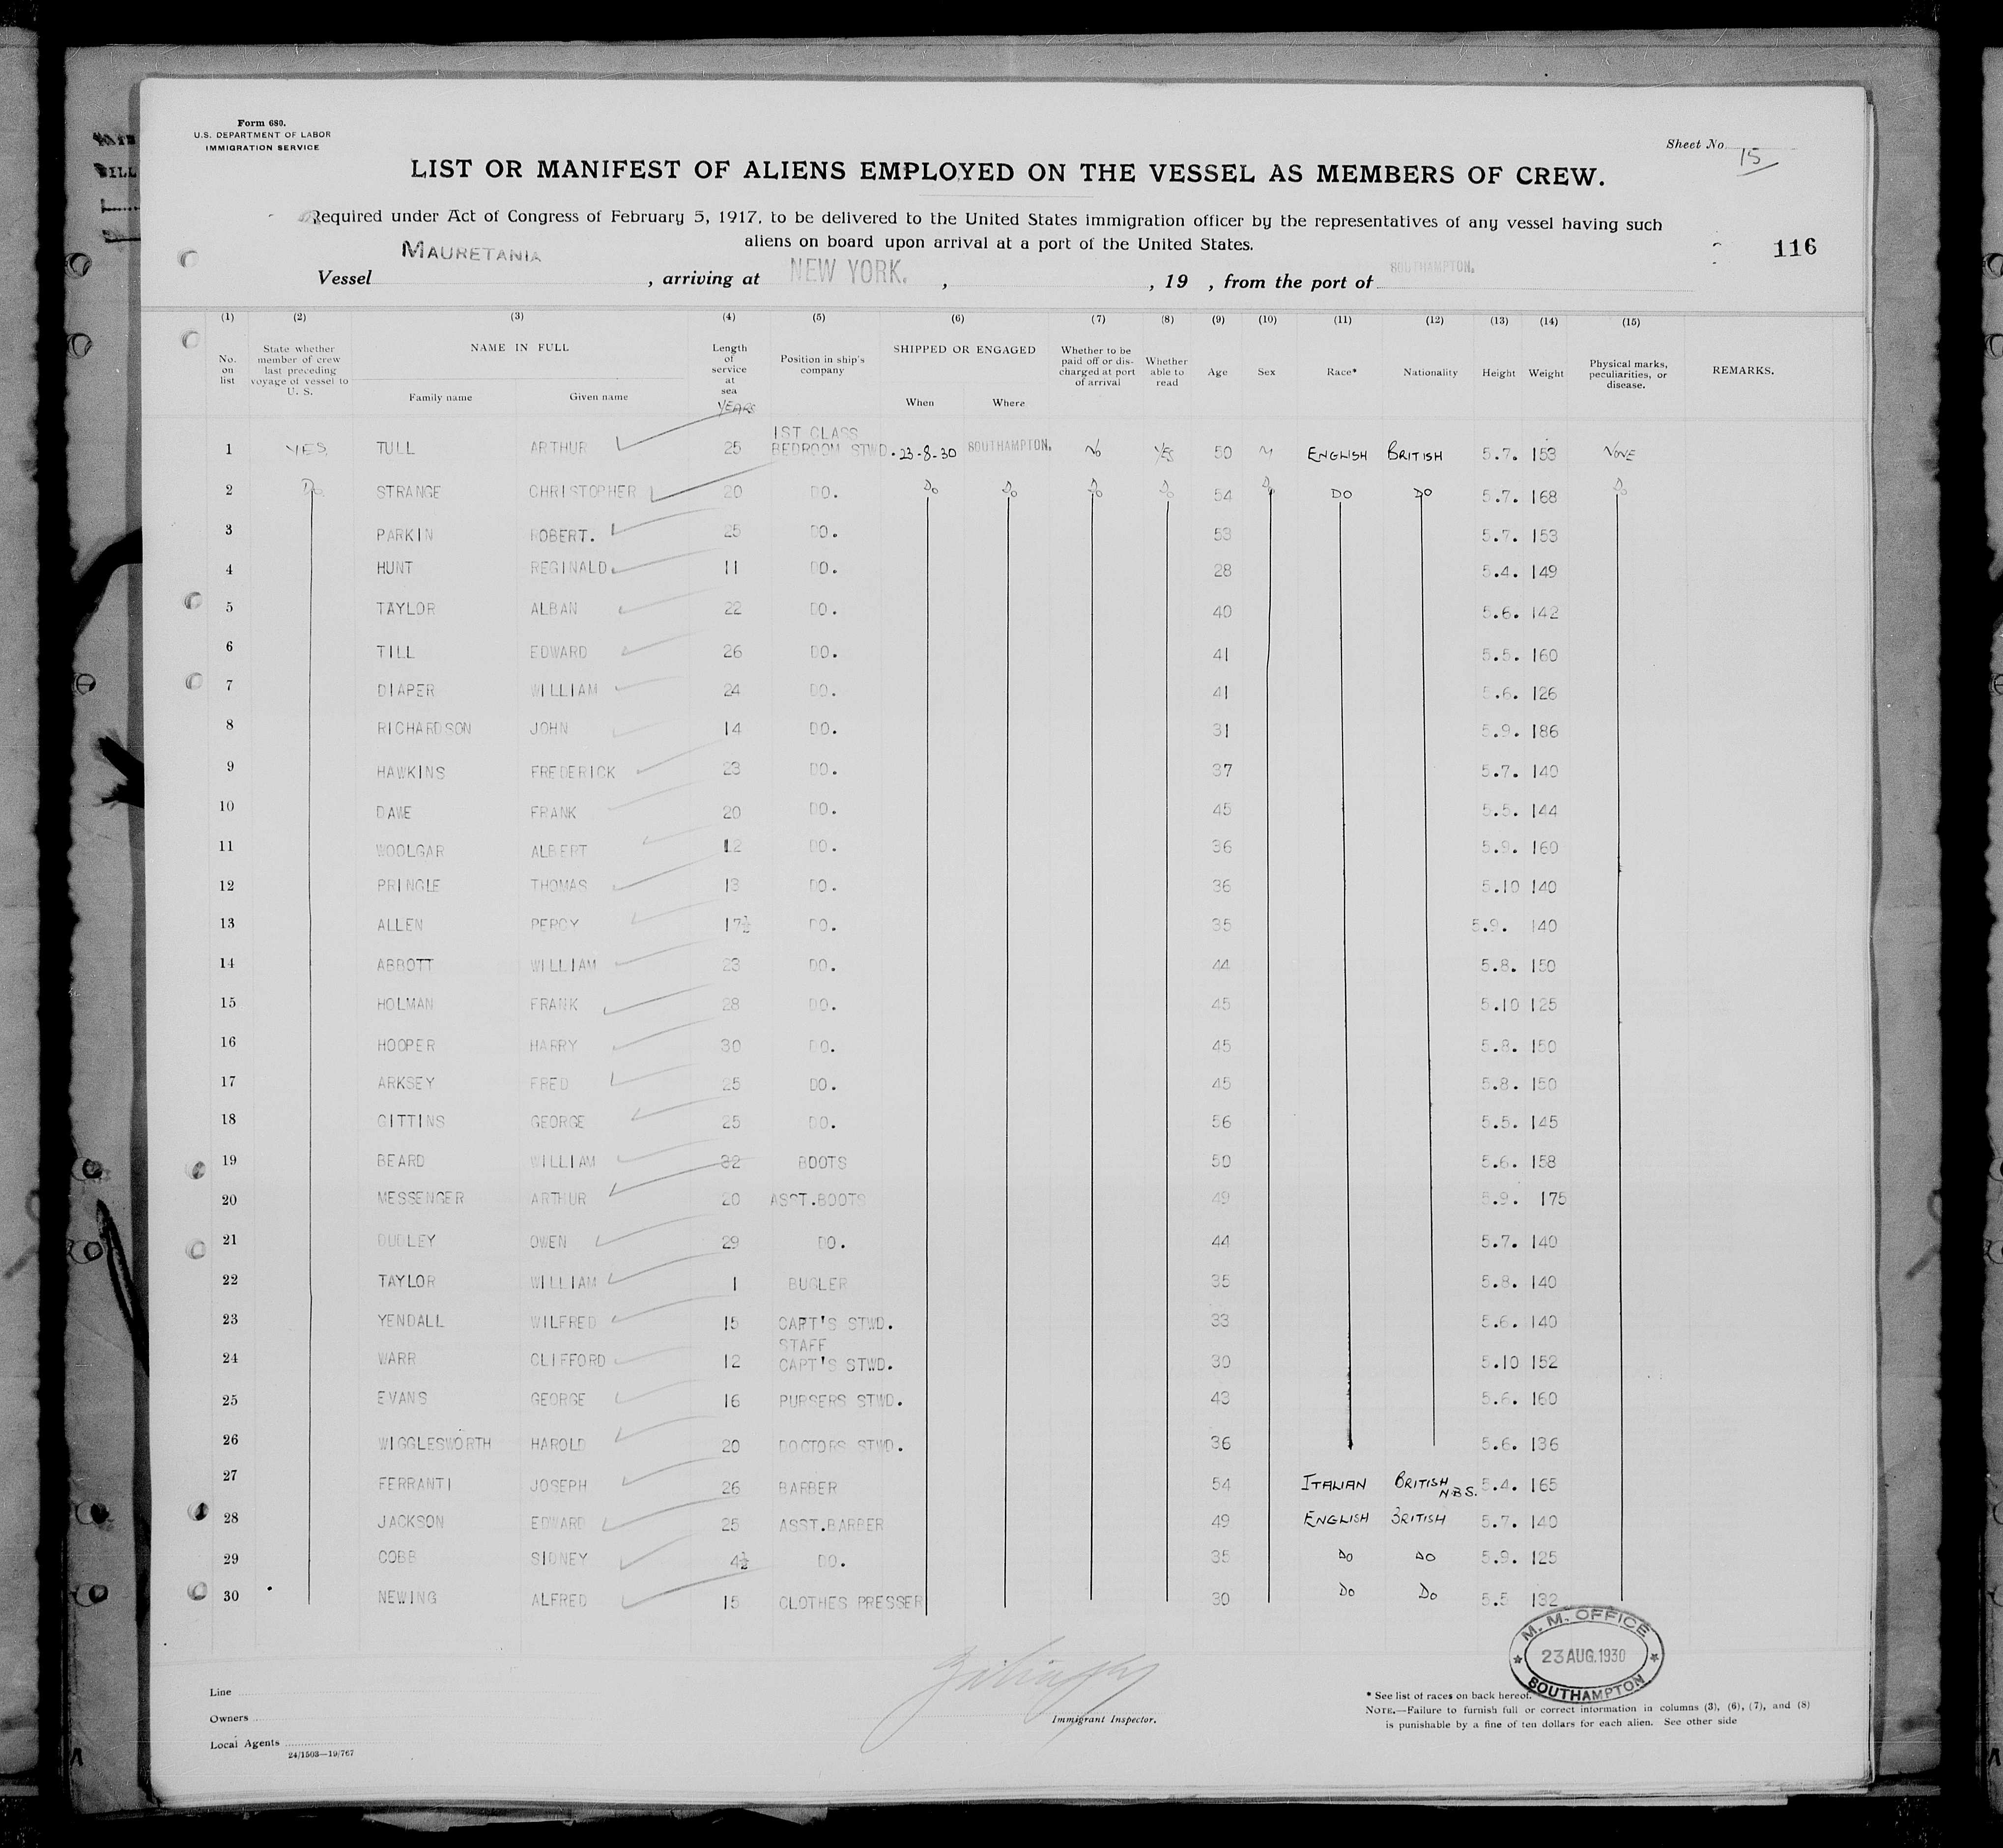 Form 680.
U.S. DEPARTMENT OF LABOR
IMMIGRATION SERVICE
Sheet No. 15
LIST OR MANIFEST OF ALIENS EMPLOYED ON THE VESSEL AS MEMBERS OF CREW.
Required under Act of Congress of February 5, 1917, to be delivered to the United States immigration officer by the representatives of any vessel having such
aliens on board upon arrival at a port of the United States.
116
Vessel MAURETANIA, arriving at NEW YORK. , , 19 , from the port of SOUTHAMPTON.
(1) (2) (3) (4) (5) (6) (7) (8) (9) (10) (11) (12) (13) (14) (15)
No. on list State whether member of crew last preceding voyage of vessel to U. S. NAME IN FULL Family name Given name Length of service at sea YEARS Position in ship's company SHIPPED OR ENGAGED When Where Whether to be paid off or discharged at port of arrival Whether able to read Age Sex Race* Nationality Height Weight Physical marks, peculiarities, or disease. REMARKS.
1 YES TULL ARTHUR 25 1ST CLASS BEDROOM STWD. 23-8-30 SOUTHAMPTON. No YES 50 M ENGLISH BRITISH 5.7. 153 NONE
2 Do STRANGE CHRISTOPHER 20 DO. Do Do Do Do 54 Do DO DO 5.7. 168 Do
3 PARKIN ROBERT. 25 DO. 53 5.7. 153
4 HUNT REGINALD. 11 DO. 28 5.4. 149
5 TAYLOR ALBAN 22 DO. 40 5.6. 142
6 TILL EDWARD 26 DO. 41 5.5. 160
7 DIAPER WILLIAM 24 DO. 41 5.6. 126
8 RICHARDSON JOHN 14 DO. 31 5.9. 186
9 HAWKINS FREDERICK 23 DO. 37 5.7. 140
10 DAWE FRANK 20 DO. 45 5.5. 144
11 WOOLGAR ALBERT 12 DO. 36 5.9. 160
12 PRINGLE THOMAS 13 DO. 36 5.10 140
13 ALLEN PERCY 17½ DO. 35 5.9. 140
14 ABBOTT WILLIAM 23 DO. 44 5.8. 150
15 HOLMAN FRANK 28 DO. 45 5.10 125
16 HOOPER HARRY 30 DO. 45 5.8. 150
17 ARKSEY FRED 25 DO. 45 5.8. 150
18 GITTINS GEORGE 25 DO. 56 5.5. 145
19 BEARD WILLIAM 32 BOOTS 50 5.6. 158
20 MESSENGER ARTHUR 20 ASST.BOOTS 49 5.9. 175
21 DUDLEY OWEN 29 DO. 44 5.7. 140
22 TAYLOR WILLIAM 1 BUGLER 35 5.8. 140
23 YENDALL WILFRED 15 CAPT'S STWD. 33 5.6. 140
24 WARR CLIFFORD 12 STAFF CAPT'S STWD. 30 5.10 152
25 EVANS GEORGE 16 PURSERS STWD. 43 5.6. 160
26 WIGGLESWORTH HAROLD 20 DOCTORS STWD. 36 5.6. 136
27 FERRANTI JOSEPH 26 BARBER 54 ITALIAN BRITISH N.B.S. 5.4. 165
28 JACKSON EDWARD 25 ASST.BARBER 49 ENGLISH BRITISH 5.7. 140
29 COBB SIDNEY 4½ DO. 35 DO DO 5.9. 125
30 NEWING ALFRED 15 CLOTHES PRESSER 30 Do Do 5.5 132
M. M. OFFICE
23 AUG. 1930
SOUTHAMPTON
Line
Owners
Local Agents
24/1503—19/767
Immigrant Inspector.
* See list of races on back hereof.
NOTE.—Failure to furnish full or correct information in columns (3), (6), (7), and (8)
is punishable by a fine of ten dollars for each alien. See other side